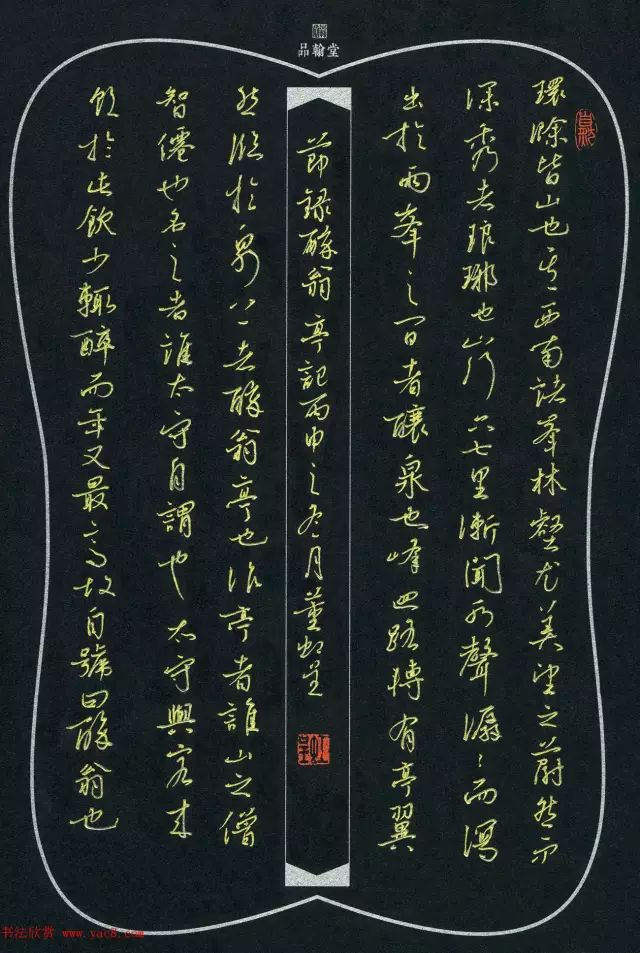 品翰堂
環滁皆山也其西南諸峯林壑尤美望之蔚然而
深秀者琅琊也山行六七里漸聞水聲潺〻而瀉
出於兩峯之間者釀泉也峰回路轉有亭翼
然臨於泉上者醉翁亭也作亭者誰山之僧
智僊也名之者誰太守自謂也太守與客來
飲於此飲少輒醉而年又最高故自號曰醉翁也
節錄醉翁亭記丙申之冬月董虹呈
书法欣赏 www.yac8.com